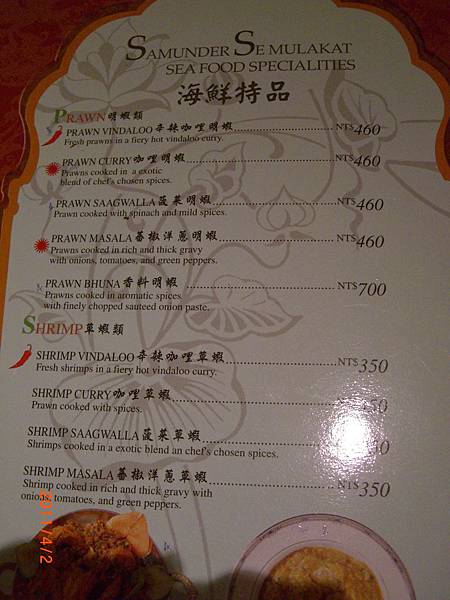 SAMUNDER SE MULAKAT
SEA FOOD SPECIALITIES
海鮮特品
PRAWN明蝦類
PRAWN VINDALOO辛辣咖哩明蝦 NT$460
Fresh prawns in a fiery hot vindaloo curry.
PRAWN CURRY咖哩明蝦 NT$460
Prawns cooked in a exotic
blend of chef's chosen spices.
PRAWN SAAGWALLA菠菜明蝦 NT$460
Prawn cooked with spinach and mild spices.
PRAWN MASALA蕃椒洋蔥明蝦 NT$460
Prawns cooked in rich and thick gravy
with onions, tomatoes, and green peppers.
PRAWN BHUNA香料明蝦 NT$700
Prawns cooked in aromatic spices
with finely chopped sauteed onion paste.
SHRIMP草蝦類
SHRIMP VINDALOO辛辣咖哩草蝦 NT$350
Fresh shrimps in a fiery hot vindaloo curry.
SHRIMP CURRY咖哩草蝦
Prawn cooked with spices.
SHRIMP SAAGWALLA菠菜草蝦
Shrimps cooked in a exotic blend an chef's chosen spices.
SHRIMP MASALA蕃椒洋蔥草蝦 NT$350
Shrimp cooked in rich and thick gravy with
onions, tomatoes, and green peppers.
2011/4/2